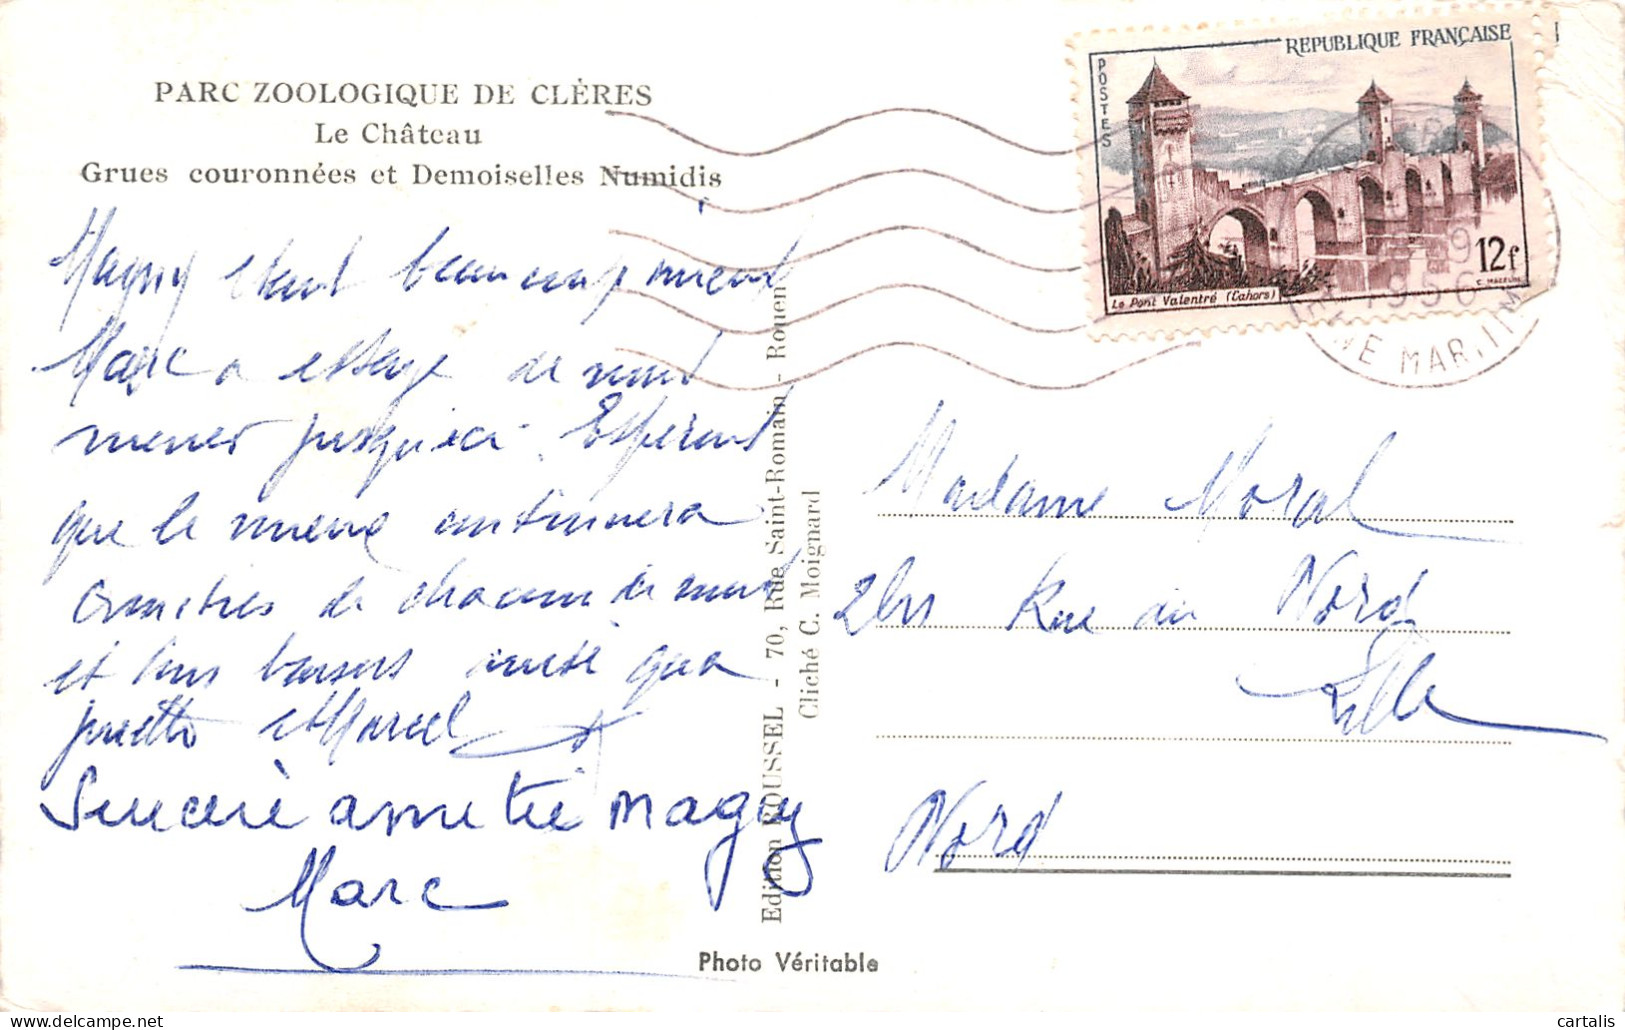 PARC ZOOLOGIQUE DE CLÈRES
Le Château
Grues couronnées et Demoiselles Numidis
Magny étant beaucoup mieux
Marc a de nous
mener jusqu'ici. Espérons
que le mieux continuera
de chacun de nous
et bons baisers ainsi qu'a
et Marcel
Sincère amitié Magy
Marc
Edition ROUSSEL - 70, Rue Saint-Romain - Rouen
Cliché C. Moignard
Photo Véritable
REPUBLIQUE FRANÇAISE
POSTES
12f
Le Pont Valentré (Cahors)
1956
MAR.IT
Madame Moral
Rue du Nord
Lille
Nord
cartalis